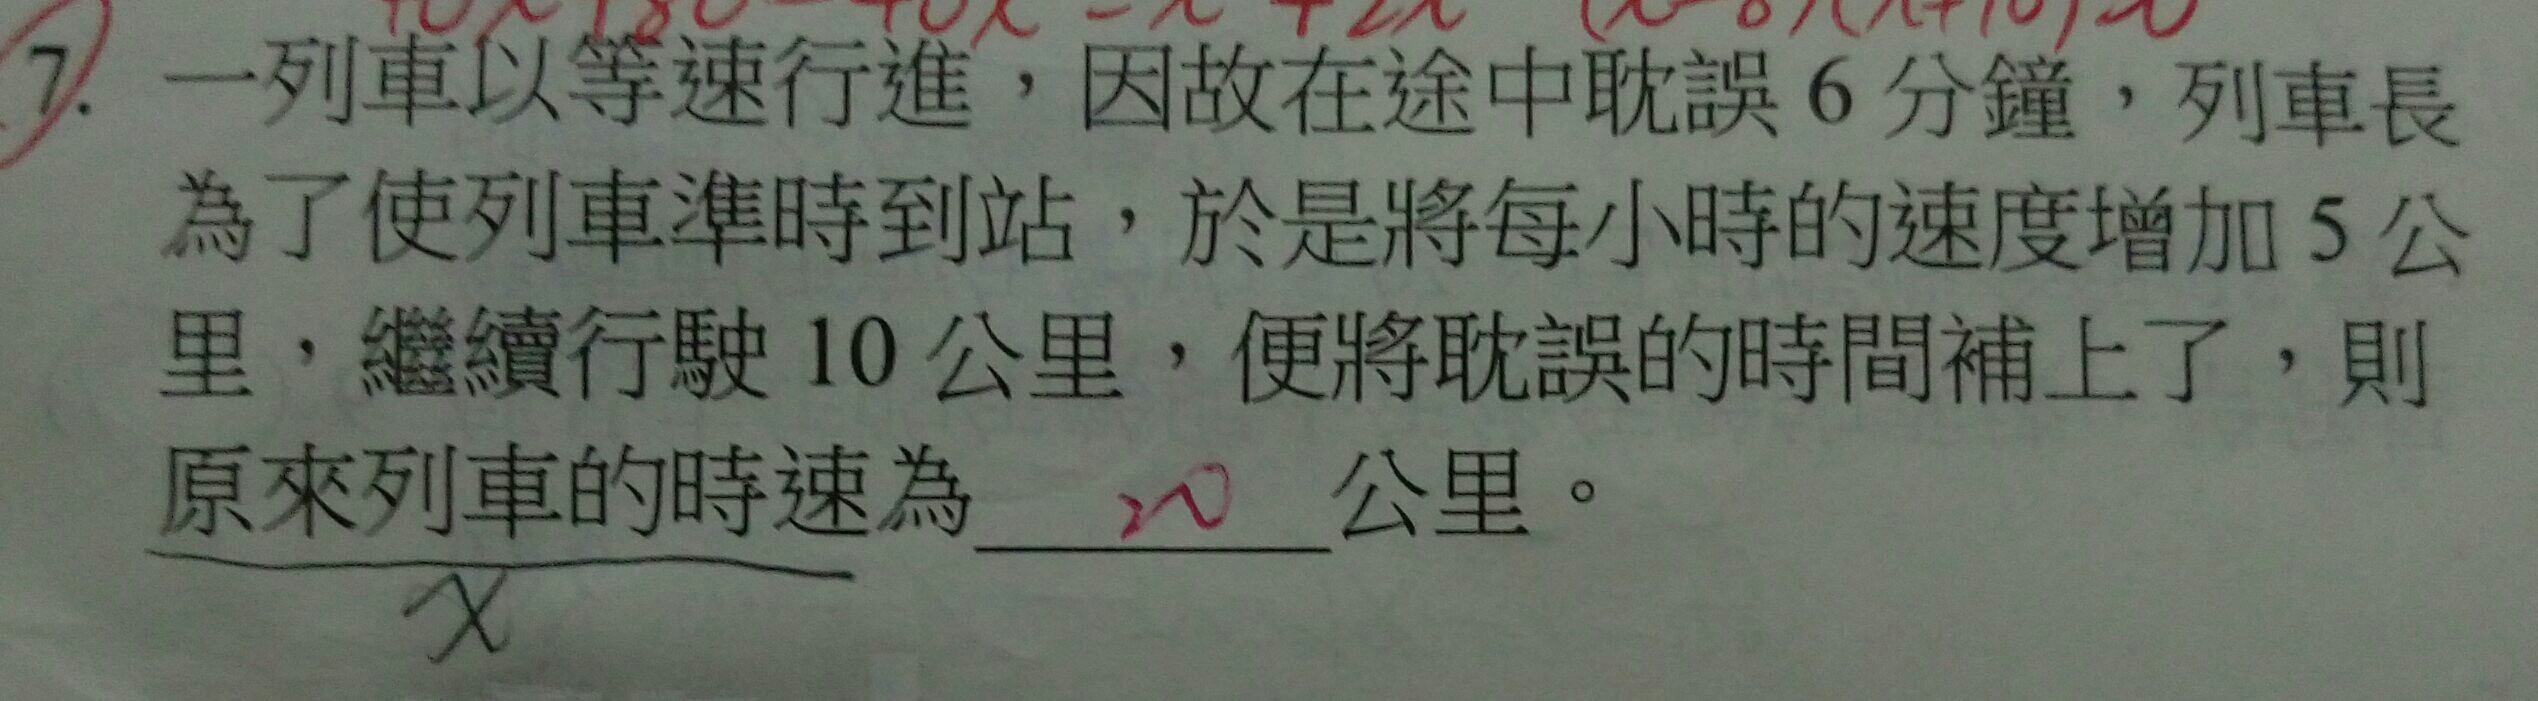 40x+80-40x=x²+2x (x-8)(x+10)=0
7. 一列車以等速行進，因故在途中耽誤 6 分鐘，列車長
為了使列車準時到站，於是將每小時的速度增加 5 公
里，繼續行駛 10 公里，便將耽誤的時間補上了，則
原來列車的時速為 20 公里。
x